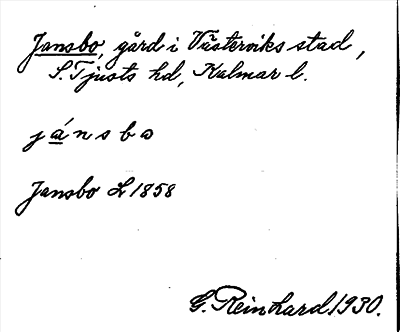 Jansbo, gård i Västerviks stad,
S. Tjusts hd, Kalmar l.
jánsbo
Jansbo L 1858
G. Reinhard 1930.